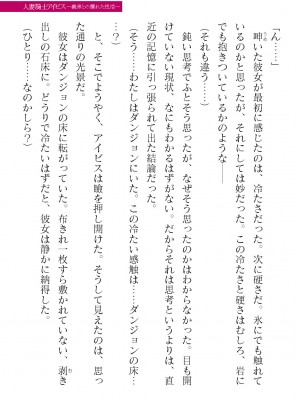 人妻騎士アイビス
「ん……」
　呻いた彼女が最初に感じたのは、冷たさだった。次に硬さだ。氷にでも触れて
いるのかと思ったが、それにしては妙だった。この冷たさと硬さはむしろ、岩に
でも抱きついているかのような――
（それも違う……）
　鈍い思考でふとそう思ったが、なぜそう思ったのかはわからなかった。目も開
けていない現状、なにもわかるはずがない。だからそれは思考というよりは、直
近の記憶に引っ張られて出た結論だった。
（そう……わたしはダンジョンにいた。この冷たい感触は……ダンジョンの床…
…？）
　と、そこでようやく、アイビスは瞼を押し開けた。そうして見えたのは、思っ
た通りの光景だ。
　彼女はダンジョンの床に転がっていた。布きれ一枚すら敷かれていない、剥き
出しの石床に。どうりで冷たいはずだと、彼女は静かに納得した。
（ひとり……なのかしら？）